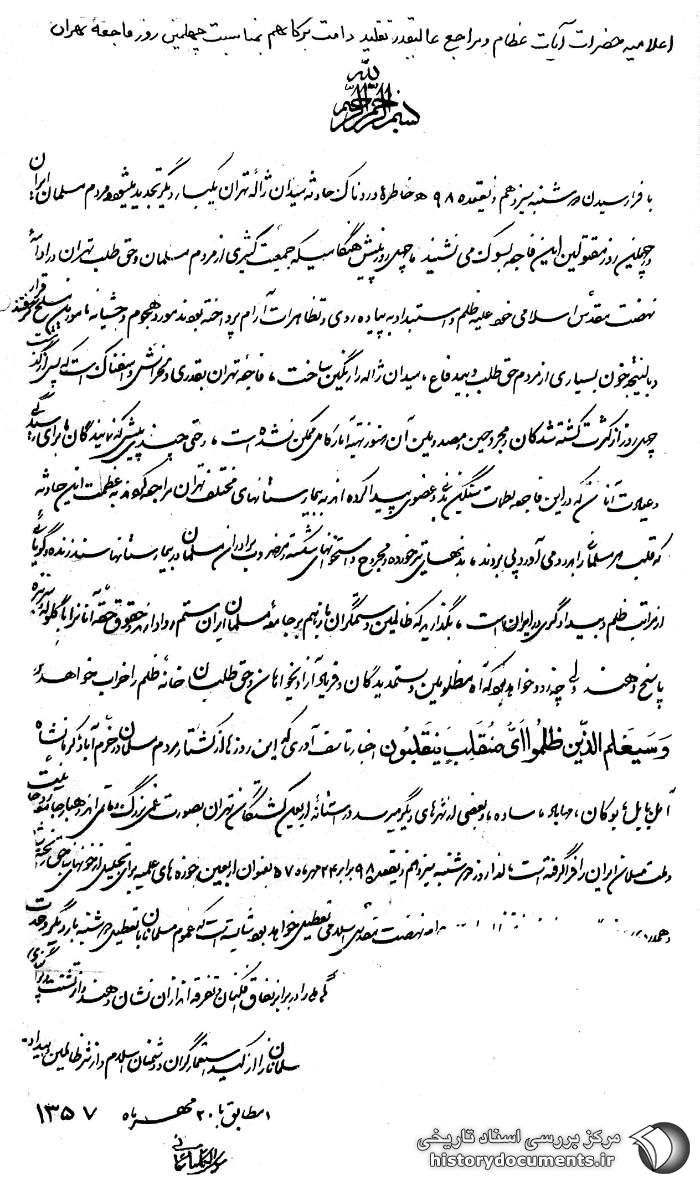 اعلامیه حضرات آیات عظام و مراجع عالیقدر تقلید دامت برکاتهم بمناسبت چهلمین روز فاجعه تهران
بسم الله الرحمن الرحیم
با فرارسیدن دوشنبه سیزدهم ذیقعده ۹۸ خاطره دردناک حادثه میدان ژاله تهران یکبار دیگر تجدید میشود و مردم مسلمان ایران
در چهلمین روز مقتولین این فاجعه بسوک می نشینند ما چهل روز پیش هنگامیکه جمعیت کثیری از مردم مسلمان و حق طلب تهران در ادامهٔ
نهضت مقدس اسلامی خود علیه ظلم و استبداد به پیاده روی و تظاهرات آرام پرداخته بودند مورد هجوم وحشیانه مامورین مسلح قرار گرفتند
و بالنتیجه خون بسیاری از مردم حق طلب و بیدفاع، میدان ژاله را رنگین ساخت، فاجعه تهران بقدری دلخراش و اسفناک است که پس از گذشت
چهل روز از کثرت کشته شدگان مجروحین و مصدومین آن هنوز تهیه آمار کامل ممکن نشده است، وقتی چند پیش که نمایندگان ما برای رسیدگی
و عیادت آنان که در این فاجعه لطمات سنگین بدنی و عضوی پیدا کرده اند به بیمارستانهای مختلف تهران مراجعه کردند به عظمت این حادثه
که قلب هر مسلمان را بدرد می آورد پی بردند، بدنهای تیر خورده مجروح و استخوانهای شکسته و مضروب برادران مسلمان در بیمارستانها سند زنده و گویائی
از مراتب ظلم و بیدادگری در ایران است، بگذارید که ظالمین و ستمگران باز هم بر جامعه مسلمان ایران ستم روا دارند و حقوق حقه آنانرا با گلوله و سرنیزه
پاسخ دهند ولی چه زود خواهد بود که آه مظلومین و ستمدیدگان و فریاد آزادیخواهان و حق طلبان خانه ظلم را خراب خواهد کرد
وَسَیَعْلَمُ الَّذینَ ظَلَمُوا اَیَّ مُنْقَلَبٍ یَنْقَلِبُون اخبار تاسف آوری که این روزها از کشتار مردم مسلمان در خرم آباد کرمانشاه
آمل بابل بوکان، مهاباد، ساوه، و بعضی از شهرهای دیگر میرسد در آستانهٔ اربعین کشتگان تهران بصورت غمی بزرگ و ماتمی اندوهبار جامعه روحانیت
و ملت مسلمان ایران را فرا گرفته است، لذا روز دوشنبه سیزدهم ذیقعده ۹۸ برابر ۲۴ مهرماه ۵۷ بعنوان اربعین حوزه های علمیه برای تجلیل از خونهای بناحق ریخته شده
و همدردی نهضت مقدس اسلامی تعطیل خواهد بود شایسته است که عموم مسلمانان با تعطیل دوشنبه بار دیگر وحدت
را در برابر نفاق افکنان و تفرقه اندازان نشان دهند و از تشتت
مسلمانان را از کید استعمارگران و دشمنان اسلام و از شر ظالمین
مطابق با ۲۰ مهر ماه ۱۳۵۷
مرکز بررسی اسناد تاریخی
historydocuments.ir